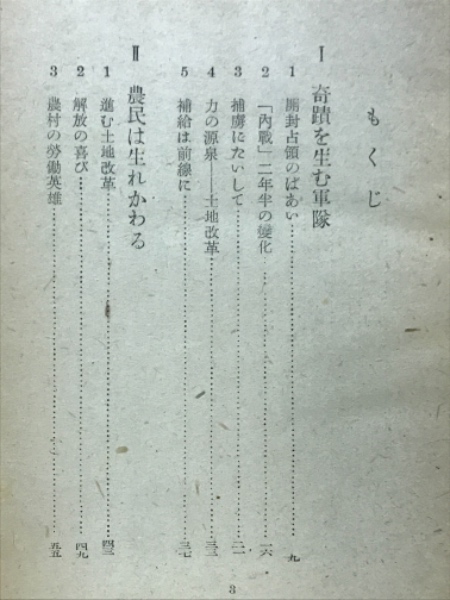 もくじ
Ⅰ 奇蹟を生む軍隊
1 開封占領のばあい……九
2 「內戰」二年半の變化……一六
3 捕虜にたいして……二一
4 力の源泉——土地改革……三三
5 補給は前線に……三七
Ⅱ 農民は生れかわる
1 進む土地改革……四三
2 解放の喜び……四九
3 農村の勞働英雄……五五
3